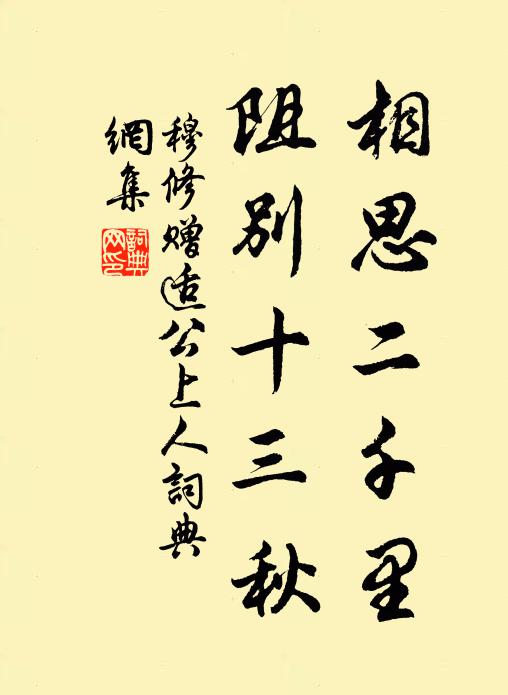 相思二千里
阻别十三秋
穆修赠适公上人詞典
網集
詞典
网印